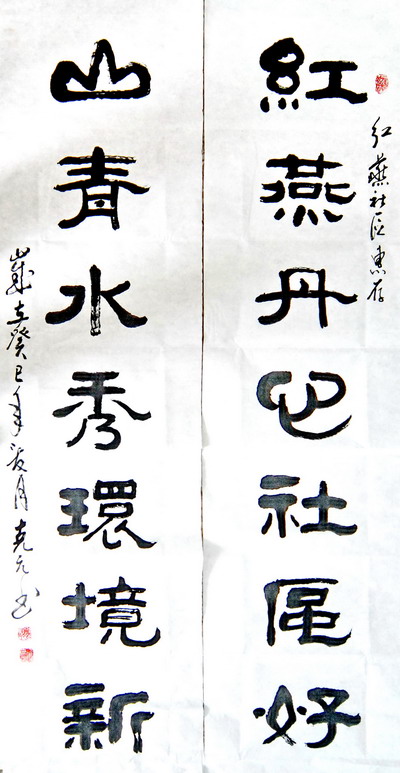 红燕社区惠存
紅燕丹心社區好
山青水秀環境新
歲在癸巳年
月克元书